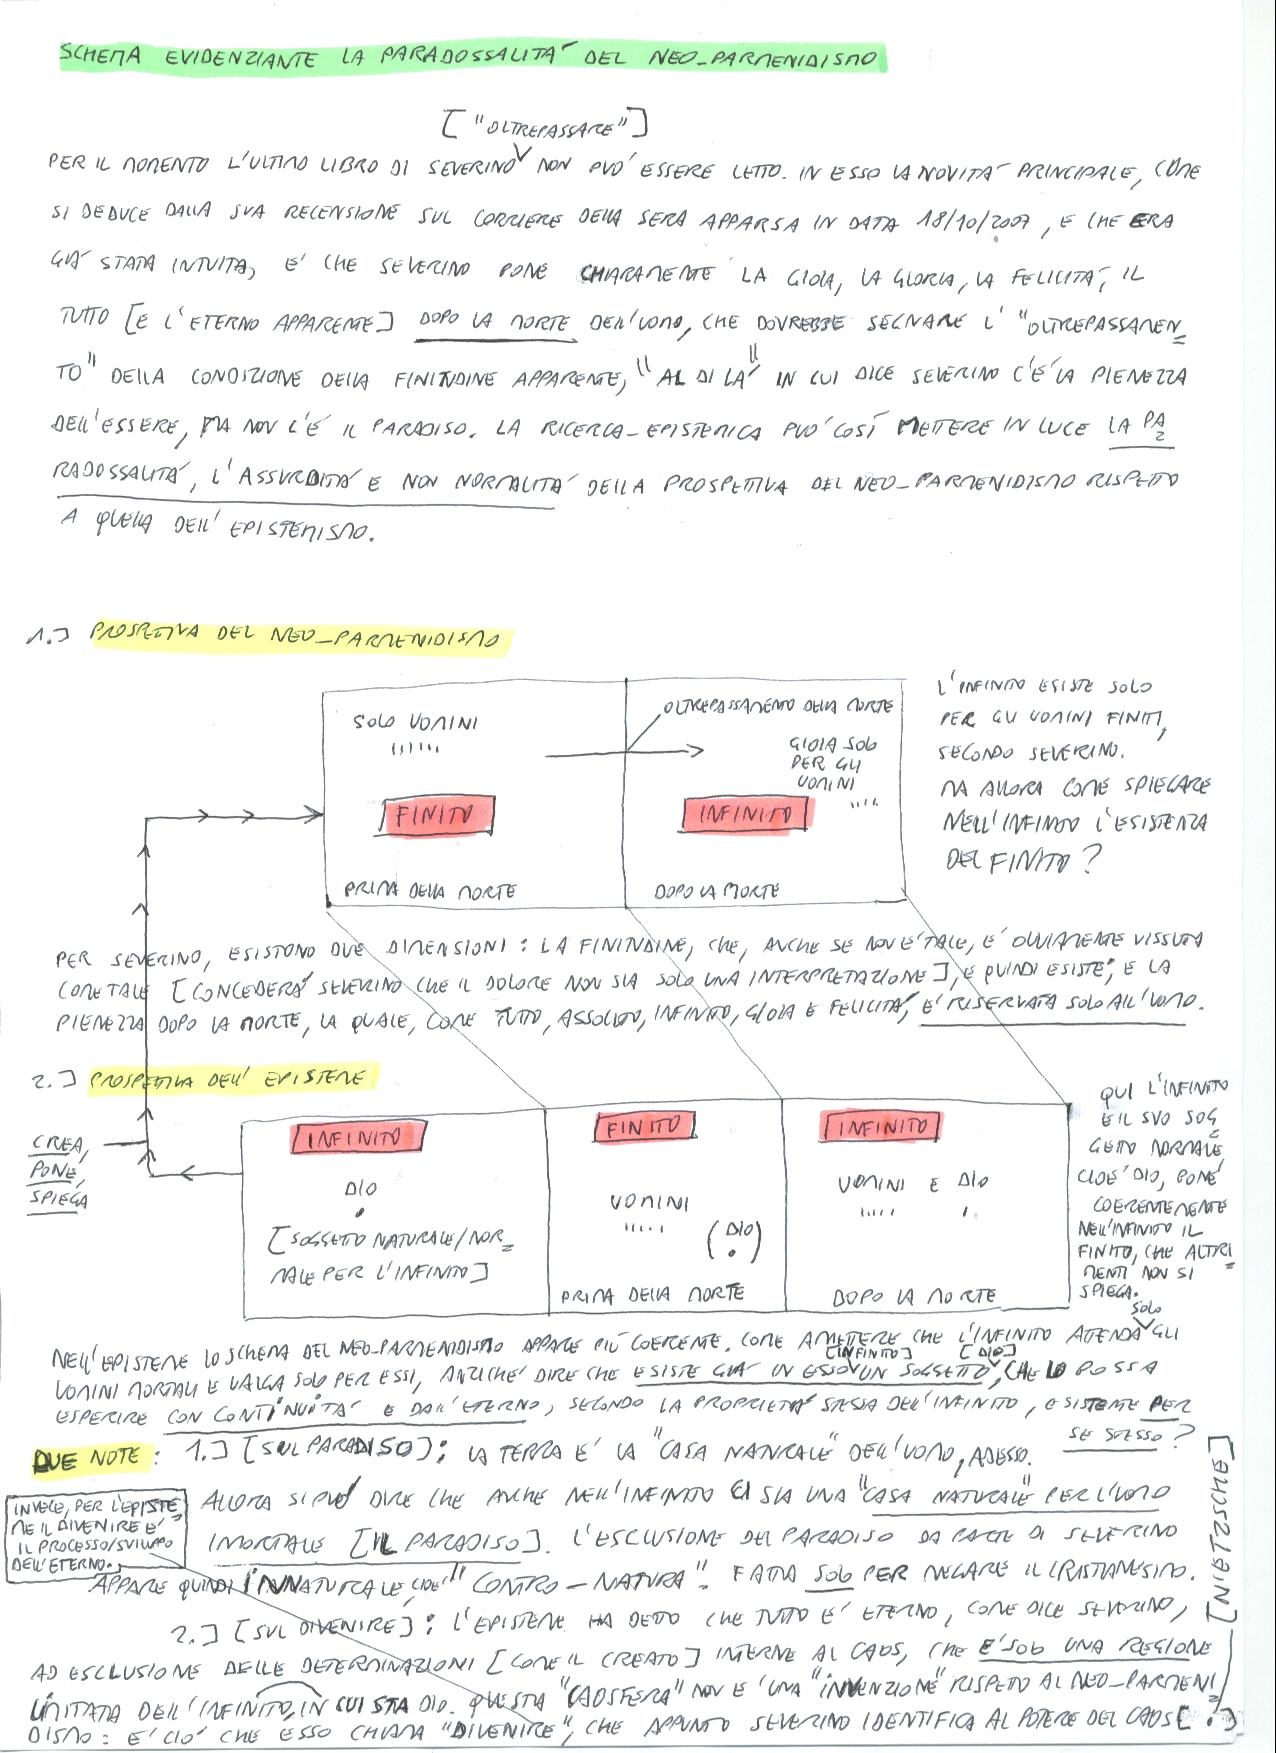 SCHEMA EVIDENZIANTE LA PARADOSSALITÀ DEL NEO-PARMENIDISMO
["OLTREPASSARE"]
PER IL MOMENTO L'ULTIMO LIBRO DI SEVERINO NON PUÒ ESSERE LETTO. IN ESSO LA NOVITÀ PRINCIPALE, COME
SI DEDUCE DALLA SUA RECENSIONE SUL CORRIERE DELLA SERA APPARSA IN DATA 18/10/2007, E CHE ERA
GIÀ STATA INTUITA, E' CHE SEVERINO PONE CHIARAMENTE LA GIOIA, LA GLORIA, LA FELICITÀ, IL
TUTTO [E L'ETERNO APPARENTE] DOPO LA MORTE DELL'UOMO, CHE DOVREBBE SEGNARE L'"OLTREPASSAMEN=
TO" DELLA CONDIZIONE DELLA FINITUDINE APPARENTE, "AL DI LÀ" IN CUI DICE SEVERINO C'È LA PIENEZZA
DELL'ESSERE, MA NON C'È IL PARADISO. LA RICERCA-EPISTEMICA PUÒ COSÌ METTERE IN LUCE LA PA=
RADOSSALITÀ, L'ASSURDITÀ E NON NORMALITÀ DELLA PROSPETTIVA DEL NEO-PARMENIDISMO RISPETTO
A QUELLA DELL'EPISTEMISMO.
1.] PROSPETTIVA DEL NEO-PARMENIDISMO
SOLO UOMINI
OLTREPASSAMENTO DELLA MORTE
GIOIA SOLO
PER GLI
UOMINI
FINITO
INFINITO
PRIMA DELLA MORTE
DOPO LA MORTE
L'INFINITO ESISTE SOLO
PER GLI UOMINI FINITI,
SECONDO SEVERINO.
MA ALLORA COME SPIEGARE
NELL'INFINITO L'ESISTENZA
DEL FINITO?
PER SEVERINO, ESISTONO DUE DIMENSIONI: LA FINITUDINE, CHE, ANCHE SE NON E' TALE, E' OVVIAMENTE VISSUTA
COME TALE [CONCEDERÀ SEVERINO CHE IL DOLORE NON SIA SOLO UNA INTERPRETAZIONE], E QUINDI ESISTE, E LA
PIENEZZA DOPO LA MORTE, LA QUALE, COME TUTTO, ASSOLUTO, INFINITO, GIOIA E FELICITÀ, E' RISERVATA SOLO ALL'UOMO.
2.] PROSPETTIVA DELL'EPISTEME
CREA,
PONE,
SPIEGA
INFINITO
DIO
[SOGGETTO NATURALE/NOR=
MALE PER L'INFINITO]
FINITO
UOMINI
(DIO)
PRIMA DELLA MORTE
INFINITO
UOMINI E DIO
DOPO LA MORTE
QUI L'INFINITO
E IL SUO SOG=
GETTO NORMALE
CIOE' DIO, PONE
COERENTEMENTE
NELL'INFINITO IL
FINITO, CHE ALTRI=
MENTI NON SI
SPIEGA.
NELL'EPISTEME LO SCHEMA DEL NEO-PARMENIDISMO APPARE PIÙ COERENTE. COME AMETTERE CHE L'INFINITO ATTENDA SOLO GLI
[INFINITO] [DIO]
UOMINI MORTALI E VALGA SOLO PER ESSI, ANZICHÉ DIRE CHE ESISTE GIÀ IN ESSO UN SOGGETTO, CHE LO POSSA
ESPERIRE CON CONTINUITÀ E DALL'ETERNO, SECONDO LA PROPRIETÀ STESSA DELL'INFINITO, ESISTENTE PER
SE STESSO?
DUE NOTE: 1.] [SUL PARADISO]: LA TERRA E' LA "CASA NATURALE" DELL'UOMO, ADESSO.
ALLORA SI PUÒ DIRE CHE ANCHE NELL'INFINITO CI SIA UNA "CASA NATURALE" PER L'UOMO
IMORTALE [IL PARADISO]. L'ESCLUSIONE DEL PARADISO DA PARTE DI SEVERINO
APPARE QUINDI INNATURALE, CIOE' "CONTRO-NATURA". FATTA SOLO PER NEGARE IL CRISTIANESIMO.
INVECE, PER L'EPISTE=
ME IL DIVENIRE E'
IL PROCESSO/SVILUPPO
DELL'ETERNO.
2.] [SUL DIVENIRE]: L'EPISTEME HA DETTO CHE TUTTO E' ETERNO, COME DICE SEVERINO,
AD ESCLUSIONE DELLE DETERMINAZIONI [COME IL CREATO] INTERNE AL CAOS, CHE E' SOLO UNA REGIONE
LIMITATA DELL'INFINITO, IN CUI STA DIO. QUESTA "CAOSFERA" NON E' UNA "INVENZIONE" RISPETTO AL NEO-PARMENI=
DISMO: E' CIÒ CHE ESSO CHIAMA "DIVENIRE", CHE APPUNTO SEVERINO IDENTIFICA AL POTERE DEL CAOS [.]
[NIETZSCHE]